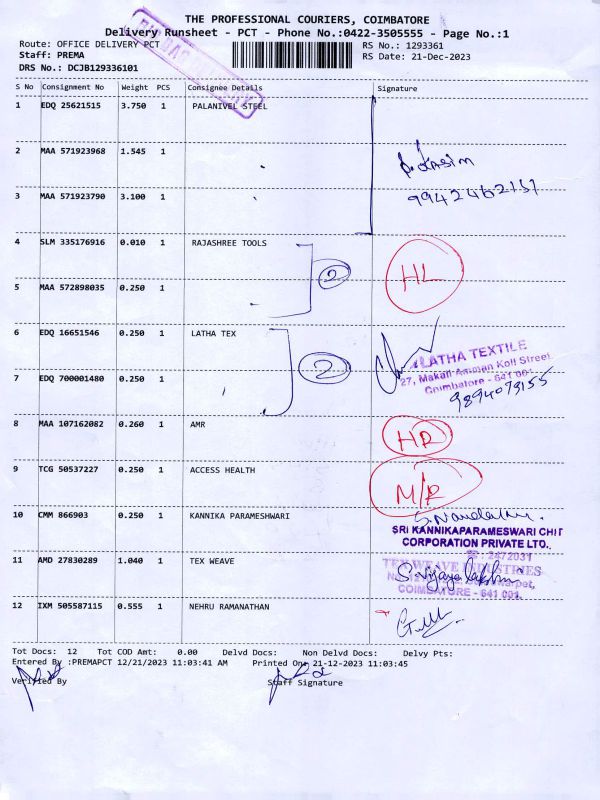 THE PROFESSIONAL COURIERS, COIMBATORE
Delivery Runsheet - PCT - Phone No.:0422-3505555 - Page No.:1
Route: OFFICE DELIVERY PCT RS No.: 1293361
Staff: PREMA RS Date: 21-Dec-2023
DRS No.: DCJB129336101
S No Consignment No Weight PCS Consignee Details Signature
1 EDQ 25621515 3.750 1 PALANIVEL STEEL
2 MAA 571923968 1.545 1
3 MAA 571923790 3.100 1
9942462151
4 SLM 335176916 0.010 1 RAJASHREE TOOLS
2 HL
5 MAA 572898035 0.250 1
6 EDQ 16651546 0.250 1 LATHA TEX
LATHA TEXTILE
2
27, Makali Amman Koil Street
7 EDQ 700001480 0.250 1
Coimbatore - 641 001
9894073155
8 MAA 107162082 0.260 1 AMR
9 TCG 50537227 0.250 1 ACCESS HEALTH
M/R
10 CMM 866903 0.250 1 KANNIKA PARAMESHWARI
SRI KANNIKAPARAMESWARI CHIT
CORPORATION PRIVATE LTD.
2472031
11 AMD 27830289 1.040 1 TEX WEAVE
TEX WEAVE INDUSTRIES
S. Vijaya lakshmi
COIMBATORE - 641 001.
12 IXM 505587115 0.555 1 NEHRU RAMANATHAN
Tot Docs: 12 Tot COD Amt: 0.00 Delvd Docs: Non Delvd Docs: Delvy Pts:
Entered By :PREMAPCT 12/21/2023 11:03:41 AM Printed On: 21-12-2023 11:03:45
Verified By Staff Signature